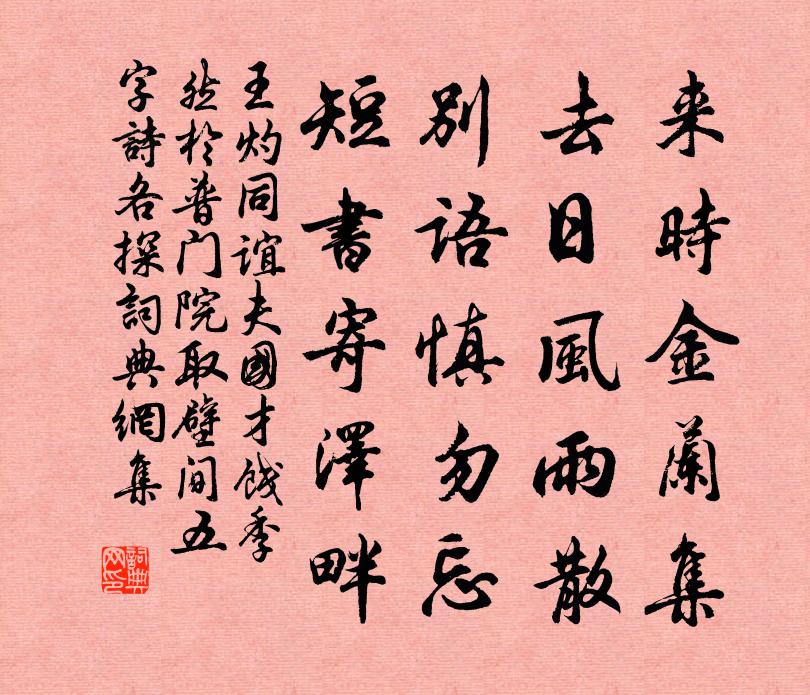 来時金蘭集
去日風雨散
別語慎勿忘
短書寄澤畔
王灼同誼夫國才餞季
然於普门院取壁间五
字詩各探詞典網集
詞典网印